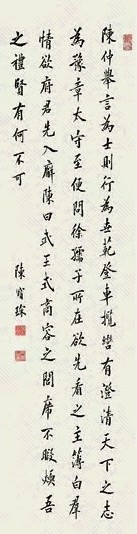 陳仲舉言為士則行為世範登車攬轡有澄清天下之志
為豫章太守至便問徐孺子所在欲先看之主簿白羣
情欲府君先入廨陳曰武王式商容之閭席不暇煖吾
之禮賢有何不可
陳寶琛